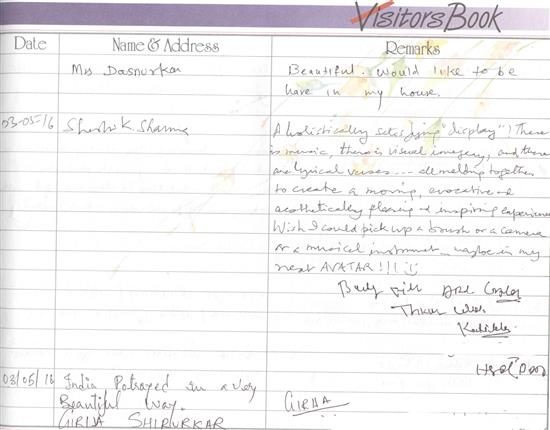 Visitors Book
Date Name & Address Remarks
Mrs Dasnurkar Beautiful. Would like to be
have in my house.
03-05-16 K. Sharma A holistically satisfying "display"! There
is music, there is visual imagery, and there
are lyrical verses... all melding together
to create a moving, evocative &
aesthetically pleasing & inspiring experience
Wish I could pick up a brush or a camera
or a musical instrument _ maybe in my
next AVATAR!!!
03/05/16 India Potrayed in a very
Beautiful Way. GIRIJA
GIRIJA SHIRURKAR